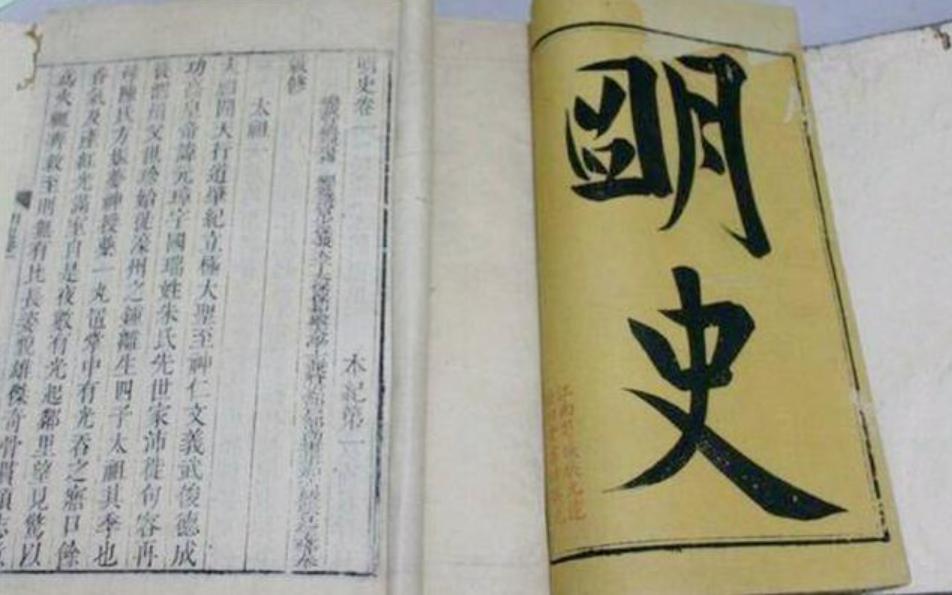 明史
明史卷一
本紀第一
敕修
太祖一
太祖開天行道肇紀立極大聖至神仁文義武俊德成
功高皇帝諱元璋字國瑞姓朱氏先世家沛徙句容再
徙泗州父世珍始徙濠州之鍾離生四子太祖其季也
母陳氏方娠夢神授藥一丸置掌中有光吞之寤口餘
香氣及產紅光滿室自是夜數有光起鄰里望見驚以
為火輒奔救至則無有比長姿貌雄傑奇骨貫頂志意